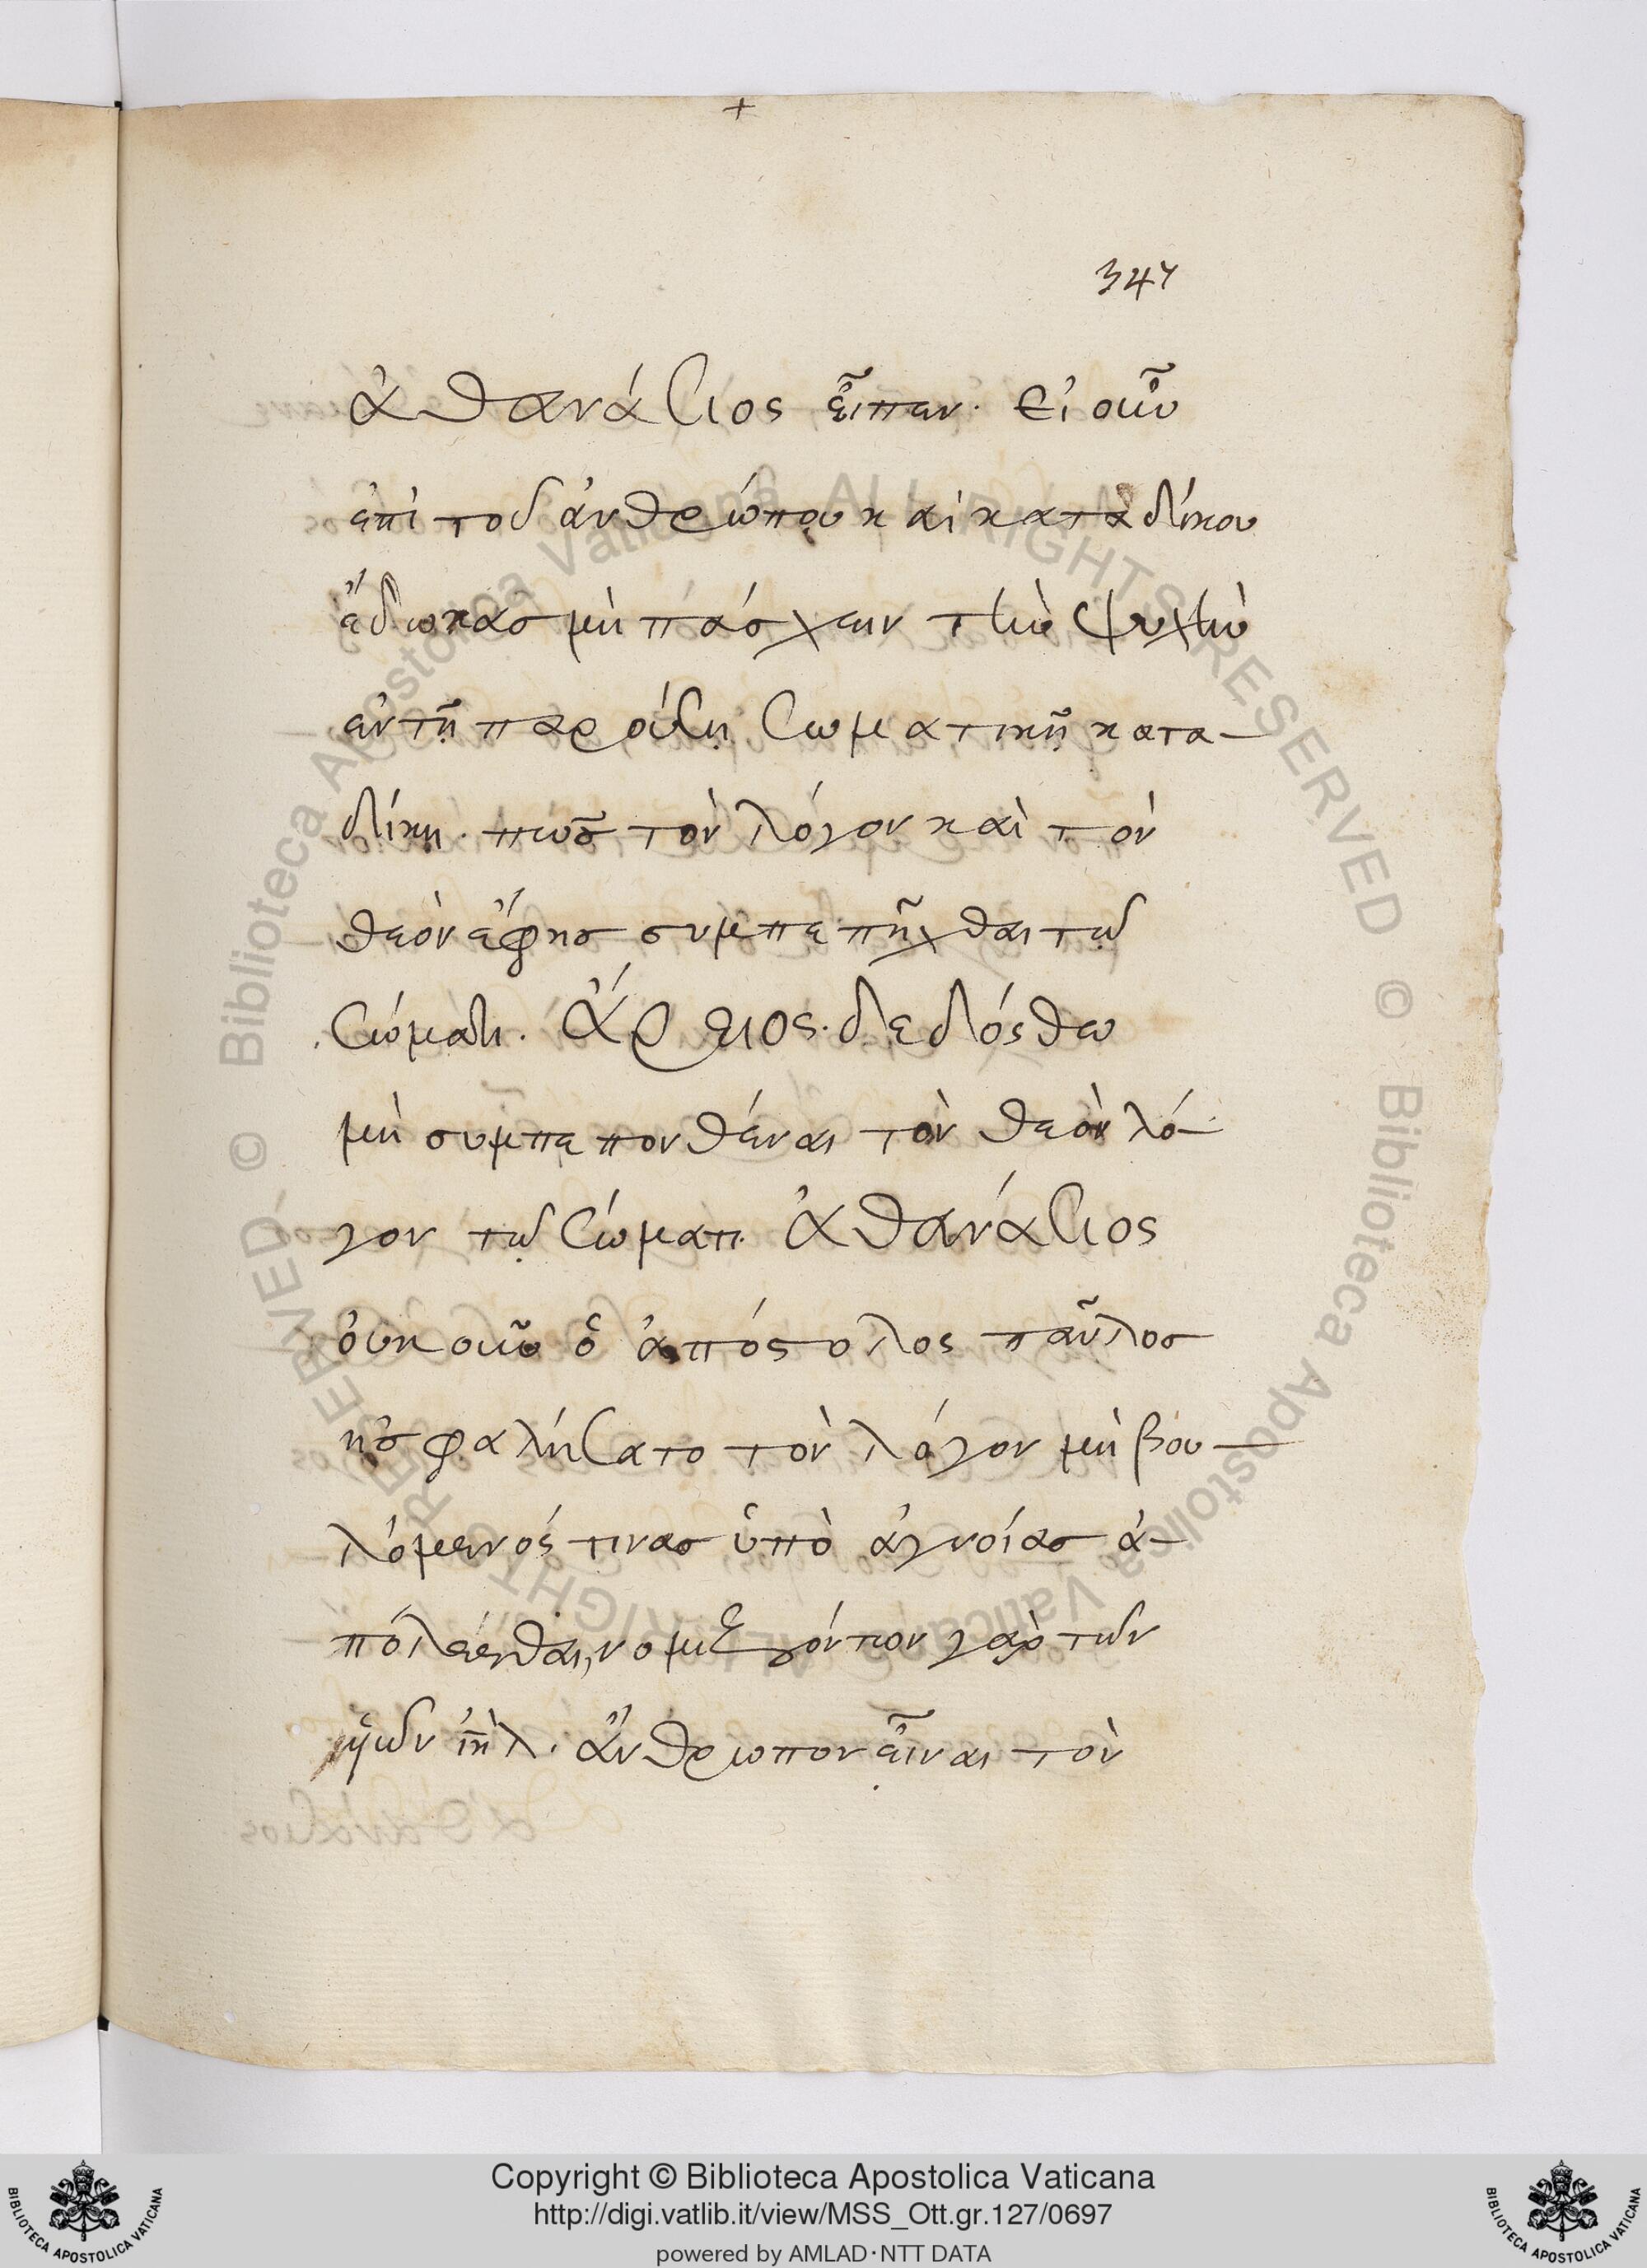 +
347
ἀθανάσιος εἶπεν. Εἰ οὖν
ἐπὶ τοῦ ἀνθρώπου καὶ καταδίκου
ἔδωκας μὴ πάσχειν τὴν ψυχὴν
ἐν τῇ παρούσῃ σωματικῇ κατα-
δίκῃ. πῶς τὸν λόγον καὶ τὸν
θεὸν ἔφης συμπεπῆχθαι τῷ
σώματι. Ἄρειος. δεδόσθω
μὴ συμπεπονθέναι τὸν θεὸν λό-
γον τῷ σώματι. ἀθανάσιος
ὀυκοῦν ὁ ἀπόστολος παῦλος
ἠσφαλήσατο τὸν λόγον μὴ βου-
λόμενός τινας ὑπὸ ἀγνοίας ἀ-
πόλεσθαι, νομιζόντων γὰρ τῶν
υἱῶν ἰηλ. ἄνθρωπον εἶναι τὸν
Copyright © Biblioteca Apostolica Vaticana
http://digi.vatlib.it/view/MSS_Ott.gr.127/0697
powered by AMLAD·NTT DATA
BIBLIOTECA APOSTOLICA VATICANA
BIBLIOTECA APOSTOLICA VATICANA
© Biblioteca Apostolica Vaticana ALL RIGHTS RESERVED
© Biblioteca Apostolica Vaticana ALL RIGHTS RESERVED